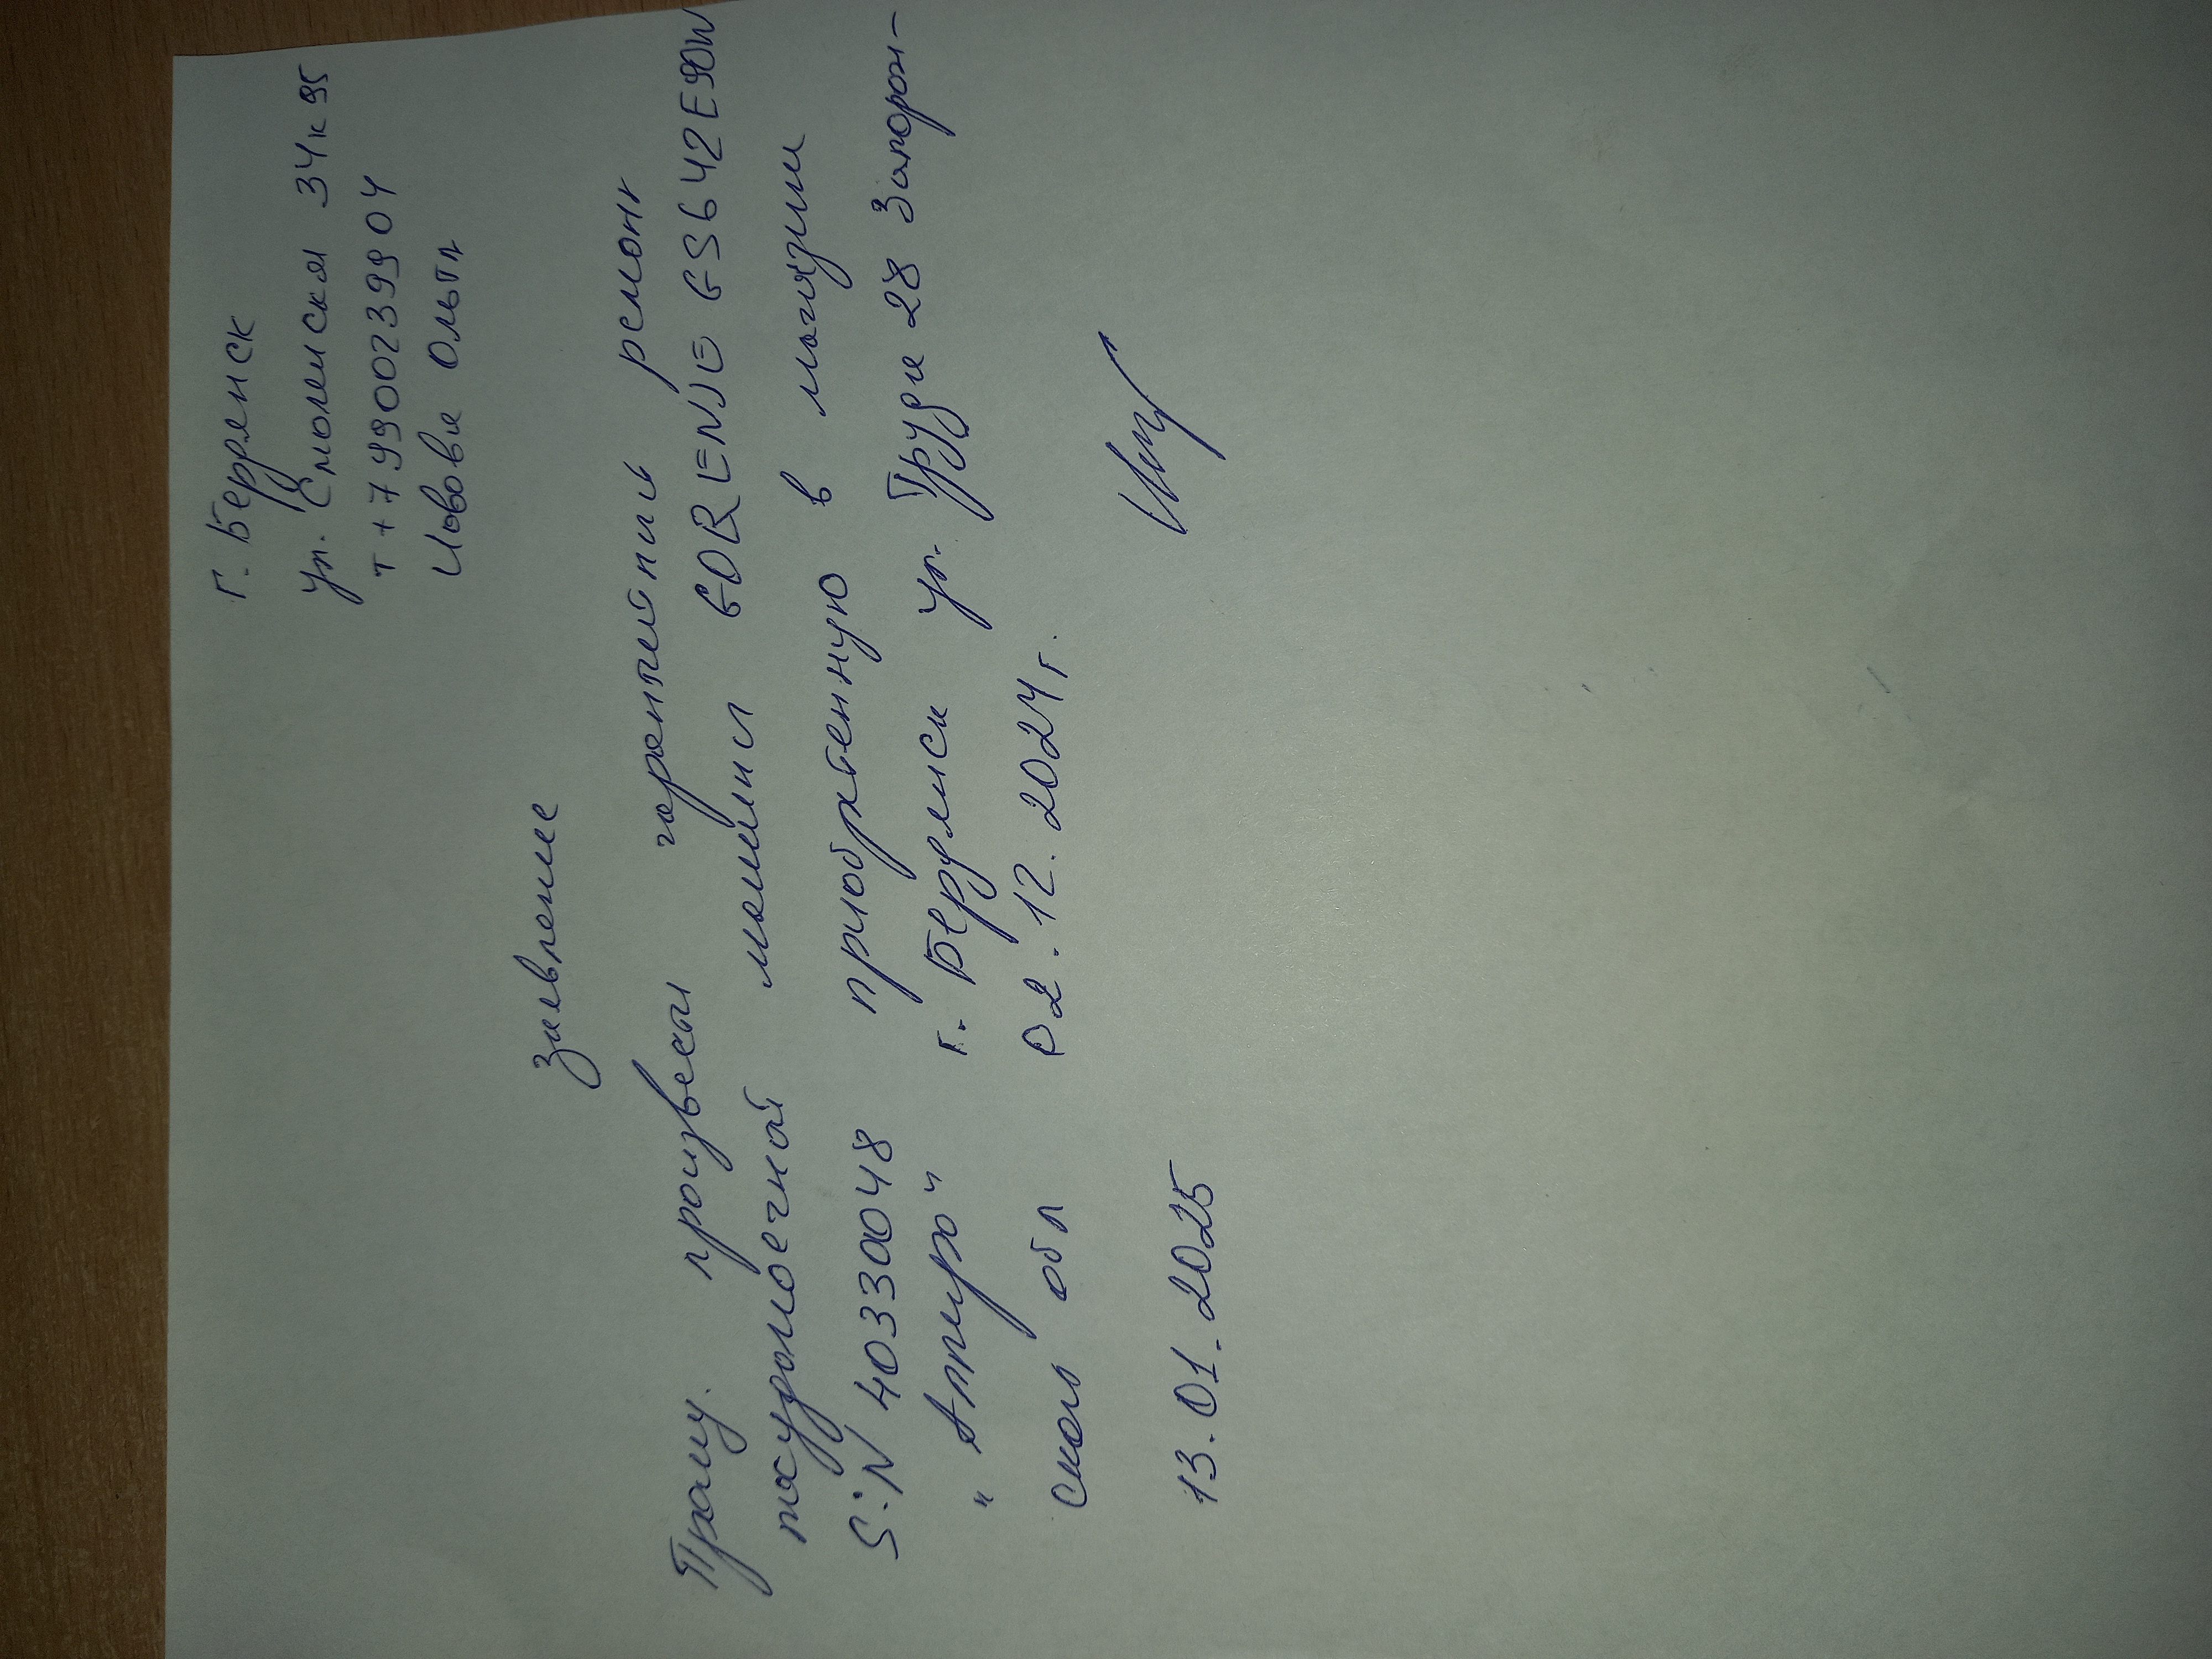 г. Бердянск
ул. Смоленская 34 к 95
т +79900239904
Ольга
Заявление
Прошу произвести гарантийный ремонт
посудомоечной машины GORENJE GS642E90W
S:N 40330048 приобретенную в магазин
"Ампера" г. Бердянск ул. Труда 28 Запорож-
ской обл 02.12.2024г.
13.01.2025